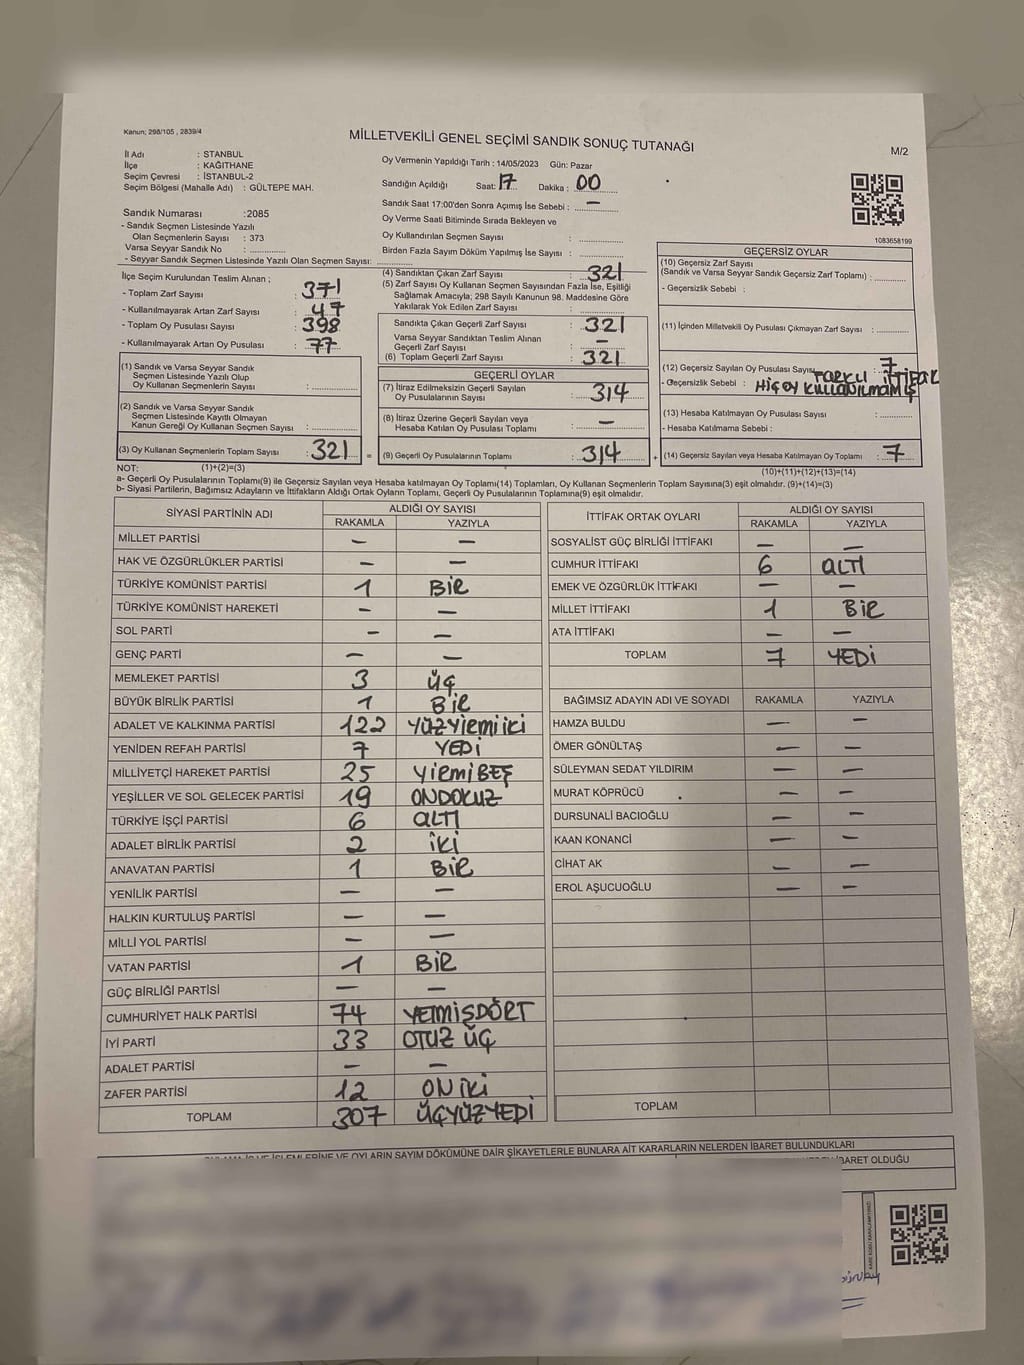 Kanun; 298/105 , 2839/4
MİLLETVEKİLİ GENEL SEÇİMİ SANDIK SONUÇ TUTANAĞI
M/2
İl Adı : STANBUL
İlçe : KAĞITHANE
Seçim Çevresi : İSTANBUL-2
Seçim Bölgesi (Mahalle Adı) : GÜLTEPE MAH.
Sandık Numarası :2085
- Sandık Seçmen Listesinde Yazılı
Olan Seçmenlerin Sayısı : 373
Varsa Seyyar Sandık No :
- Seyyar Sandık Seçmen Listesinde Yazılı Olan Seçmen Sayısı:
Oy Vermenin Yapıldığı Tarih : 14/05/2023 Gün: Pazar
Sandığın Açıldığı Saat: 17 Dakika : 00
Sandık Saat 17:00'den Sonra Açılmış İse Sebebi : —
Oy Verme Saati Bitiminde Sırada Bekleyen ve
Oy Kullandırılan Seçmen Sayısı :
Birden Fazla Sayım Döküm Yapılmış İse Sayısı :
1083658199
İlçe Seçim Kurulundan Teslim Alınan ;
- Toplam Zarf Sayısı : 371
- Kullanılmayarak Artan Zarf Sayısı : 47
- Toplam Oy Pusulası Sayısı : 398
- Kullanılmayarak Artan Oy Pusulası : 77
(1) Sandık ve Varsa Seyyar Sandık
Seçmen Listesinde Yazılı Olup
Oy Kullanan Seçmenlerin Sayısı :
(2) Sandık ve Varsa Seyyar Sandık
Seçmen Listesinde Kayıtlı Olmayan
Kanun Gereği Oy Kullanan Seçmen Sayısı :
(3) Oy Kullanan Seçmenlerin Toplam Sayısı : 321 =
(4) Sandıktan Çıkan Zarf Sayısı : 321
(5) Zarf Sayısı Oy Kullanan Seçmen Sayısından Fazla İse, Eşitliği
Sağlamak Amacıyla; 298 Sayılı Kanunun 98. Maddesine Göre
Yakılarak Yok Edilen Zarf Sayısı :
Sandıkta Çıkan Geçerli Zarf Sayısı : 321
Varsa Seyyar Sandıktan Teslim Alınan
Geçerli Zarf Sayısı : —
(6) Toplam Geçerli Zarf Sayısı : 321
GEÇERLİ OYLAR
(7) İtiraz Edilmeksizin Geçerli Sayılan
Oy Pusulalarının Sayısı : 314
(8) İtiraz Üzerine Geçerli Sayılan veya
Hesaba Katılan Oy Pusulası Toplamı : —
(9) Geçerli Oy Pusulalarının Toplamı : 314 +
GEÇERSİZ OYLAR
(10) Geçersiz Zarf Sayısı
(Sandık ve Varsa Seyyar Sandık Geçersiz Zarf Toplamı) :
- Geçersizlik Sebebi :
(11) İçinden Milletvekili Oy Pusulası Çıkmayan Zarf Sayısı :
(12) Geçersiz Sayılan Oy Pusulası Sayısı 7
FARKLI İTTİFAK
- Geçersizlik Sebebi : HİÇ OY KULLANILMAMIŞ
(13) Hesaba Katılmayan Oy Pusulası Sayısı :
- Hesaba Katılmama Sebebi :
(14) Geçersiz Sayılan veya Hesaba Katılmayan Oy Toplamı : 7
NOT: (1)+(2)=(3)
(10)+(11)+(12)+(13)=(14)
a- Geçerli Oy Pusulalarının Toplamı(9) ile Geçersiz Sayılan veya Hesaba katılmayan Oy Toplamı(14) Toplamları, Oy Kullanan Seçmenlerin Toplam Sayısına(3) eşit olmalıdır. (9)+(14)=(3)
b- Siyasi Partilerin, Bağımsız Adayların ve İttifakların Aldığı Ortak Oyların Toplamı, Geçerli Oy Pusulalarının Toplamına(9) eşit olmalıdır.
SİYASİ PARTİNİN ADI ALDIĞI OY SAYISI
RAKAMLA YAZIYLA
MİLLET PARTİSİ — —
HAK VE ÖZGÜRLÜKLER PARTİSİ — —
TÜRKİYE KOMÜNİST PARTİSİ 1 BİR
TÜRKİYE KOMÜNİST HAREKETİ — —
SOL PARTİ — —
GENÇ PARTİ — —
MEMLEKET PARTİSİ 3 ÜÇ
BÜYÜK BİRLİK PARTİSİ 1 BİR
ADALET VE KALKINMA PARTİSİ 122 YÜZYİRMİİKİ
YENİDEN REFAH PARTİSİ 7 YEDİ
MİLLİYETÇİ HAREKET PARTİSİ 25 YİRMİBEŞ
YEŞİLLER VE SOL GELECEK PARTİSİ 19 ONDOKUZ
TÜRKİYE İŞÇİ PARTİSİ 6 ALTI
ADALET BİRLİK PARTİSİ 2 İKİ
ANAVATAN PARTİSİ 1 BİR
YENİLİK PARTİSİ — —
HALKIN KURTULUŞ PARTİSİ — —
MİLLİ YOL PARTİSİ — —
VATAN PARTİSİ 1 BİR
GÜÇ BİRLİĞİ PARTİSİ — —
CUMHURİYET HALK PARTİSİ 74 YETMİŞDÖRT
İYİ PARTİ 33 OTUZ ÜÇ
ADALET PARTİSİ — —
ZAFER PARTİSİ 12 ON İKİ
TOPLAM 307 ÜÇYÜZYEDİ
İTTİFAK ORTAK OYLARI ALDIĞI OY SAYISI
RAKAMLA YAZIYLA
SOSYALİST GÜÇ BİRLİĞİ İTTİFAKI — —
CUMHUR İTTİFAKI 6 ALTI
EMEK VE ÖZGÜRLÜK İTTİFAKI — —
MİLLET İTTİFAKI 1 BİR
ATA İTTİFAKI — —
TOPLAM 7 YEDİ
BAĞIMSIZ ADAYIN ADI VE SOYADI RAKAMLA YAZIYLA
HAMZA BULDU — —
ÖMER GÖNÜLTAŞ — —
SÜLEYMAN SEDAT YILDIRIM — —
MURAT KÖPRÜCÜ — —
DURSUNALİ BACIOĞLU — —
KAAN KONANCİ — —
CİHAT AK — —
EROL AŞUCUOĞLU — —
TOPLAM
İŞLEMLERİNE VE OYLARIN SAYIM DÖKÜMÜNE DAİR ŞİKAYETLERLE BUNLARA AİT KARARLARIN NELERDEN İBARET BULUNDUKLARI
İBARET OLDUĞU